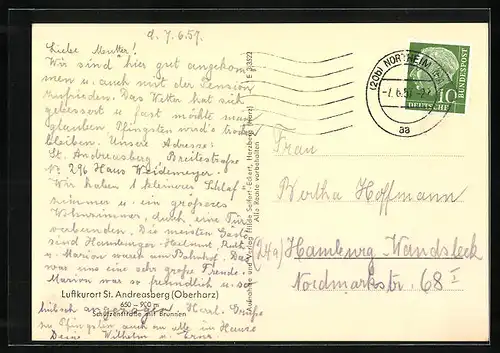 d. 7.6.57.
Liebe Mutter!
Wir sind hier gut angekom
men u. auch mit der Pension
zufrieden. Das Wetter hat sich
gebessert u. fast möchte man
glauben Pfingsten wird's trocken
bleiben. Unsere Adresse:
St. Andreasberg Breitestraße
Nr. 296 Haus Weidemeyer.
Wir haben 1 kleineres Schlaf-
zimmer u. ein grösseres
Wohnzimmer, durch eine Tür
verbunden. Die meisten Gäste
sind Hamburger. Helmut, Ruth
u. Marion waren am Bahnhof. Das
war uns eine sehr große Freude.
Marion war so freundlich u. so
Luftkurort St. Andreasberg (Oberharz)
650 - 900 m
Schützenstraße mit Brunnen
hübsch angezogen. Herzl. Grüße
zu Pfingsten auch an alle im Hause
Deine Wilhelm u. Erna
E 23322
Aufnahme und Verlag Hilde Seifert-Eckert, Herzberg (Harz)
Alle Rechte vorbehalten
(20b) NORTHEIM
-7.6.57
aa
10
DEUTSCHE
BUNDESPOST
Frau
Bertha Hoffmann
(24a) Hamburg-Wandsbek
Nordmarkstr. 68 I